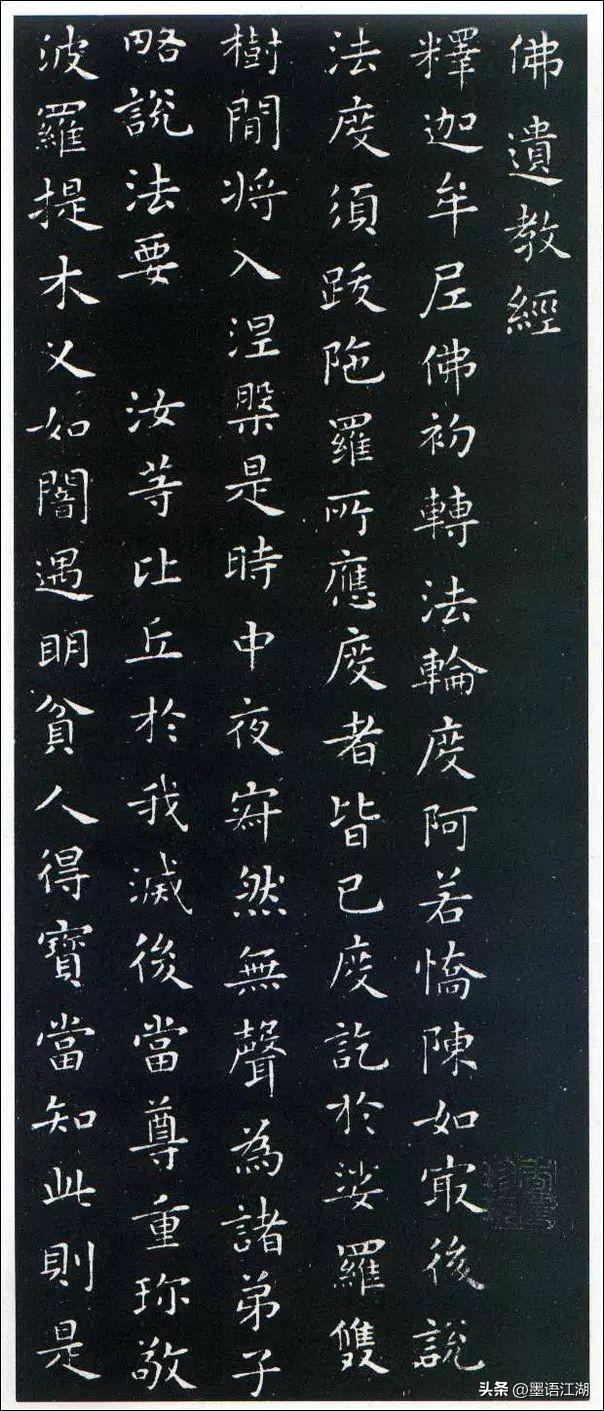 佛遺教經
釋迦牟尼佛初轉法輪度阿若憍陳如冣後說
法度須跋陁羅所應度者皆已度訖於娑羅雙
樹間将入涅槃是時中夜寂然無聲為諸弟子
略說法要 汝等比丘於我滅後當尊重珎敬
波羅提木叉如闇遇明貧人得寶當知此則是
头条 @墨语江湖